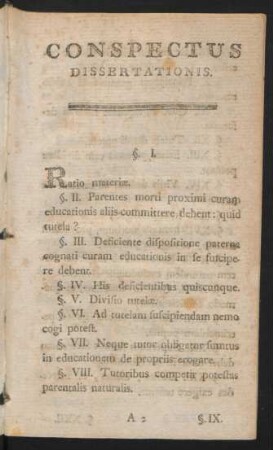 CONSPECTUS
DISSERTATIONIS.
§. I.
Ratio materiæ.
§. II. Parentes morti proximi curam
educationis aliis committere debent: quid
tutela?
§. III. Deficiente dispositione paterna
cognati curam educationis in se suscipe-
re debent.
§. IV. His deficientibus quiscunque.
§. V. Divisio tutelæ.
§. VI. Ad tutelam suscipiendam nemo
cogi potest.
§. VII. Neque tutor obligatur sumtus
in educationem de propriis erogare.
§. VIII. Tutoribus competit potestas
parentalis naturalis.
A 2 §. IX.